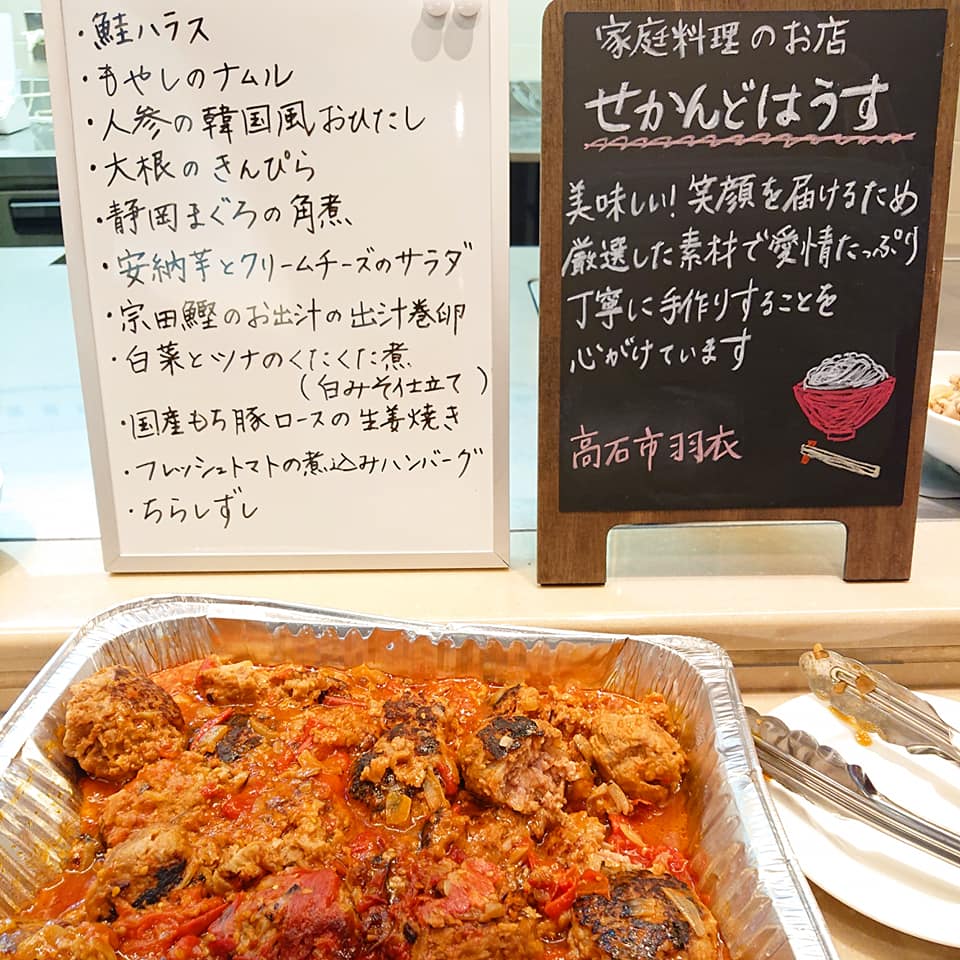 ・鮭ハラス
・もやしのナムル
・人参の韓国風おひたし
・大根のきんぴら
・静岡まぐろの角煮
・安納芋とクリームチーズのサラダ
・宗田鰹のお出汁の出汁巻卵
・白菜とツナのくたくた煮
(白みそ仕立て)
・国産もち豚ロースの生姜焼き
・フレッシュトマトの煮込みハンバーグ
・ちらしずし
家庭料理のお店
せかんどはうす
美味しい!笑顔を届けるため
厳選した素材で愛情たっぷり
丁寧に手作りすることを
心がけています
高石市羽衣